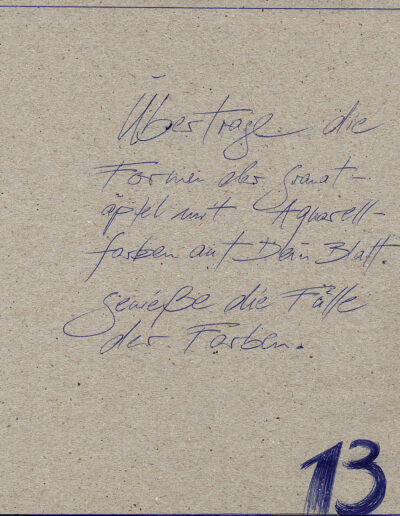 Übertrage die
Formen der Granat-
äpfel mit Aquarell-
farben auf Dein Blatt.
genieße die Fülle
der Farben.
13